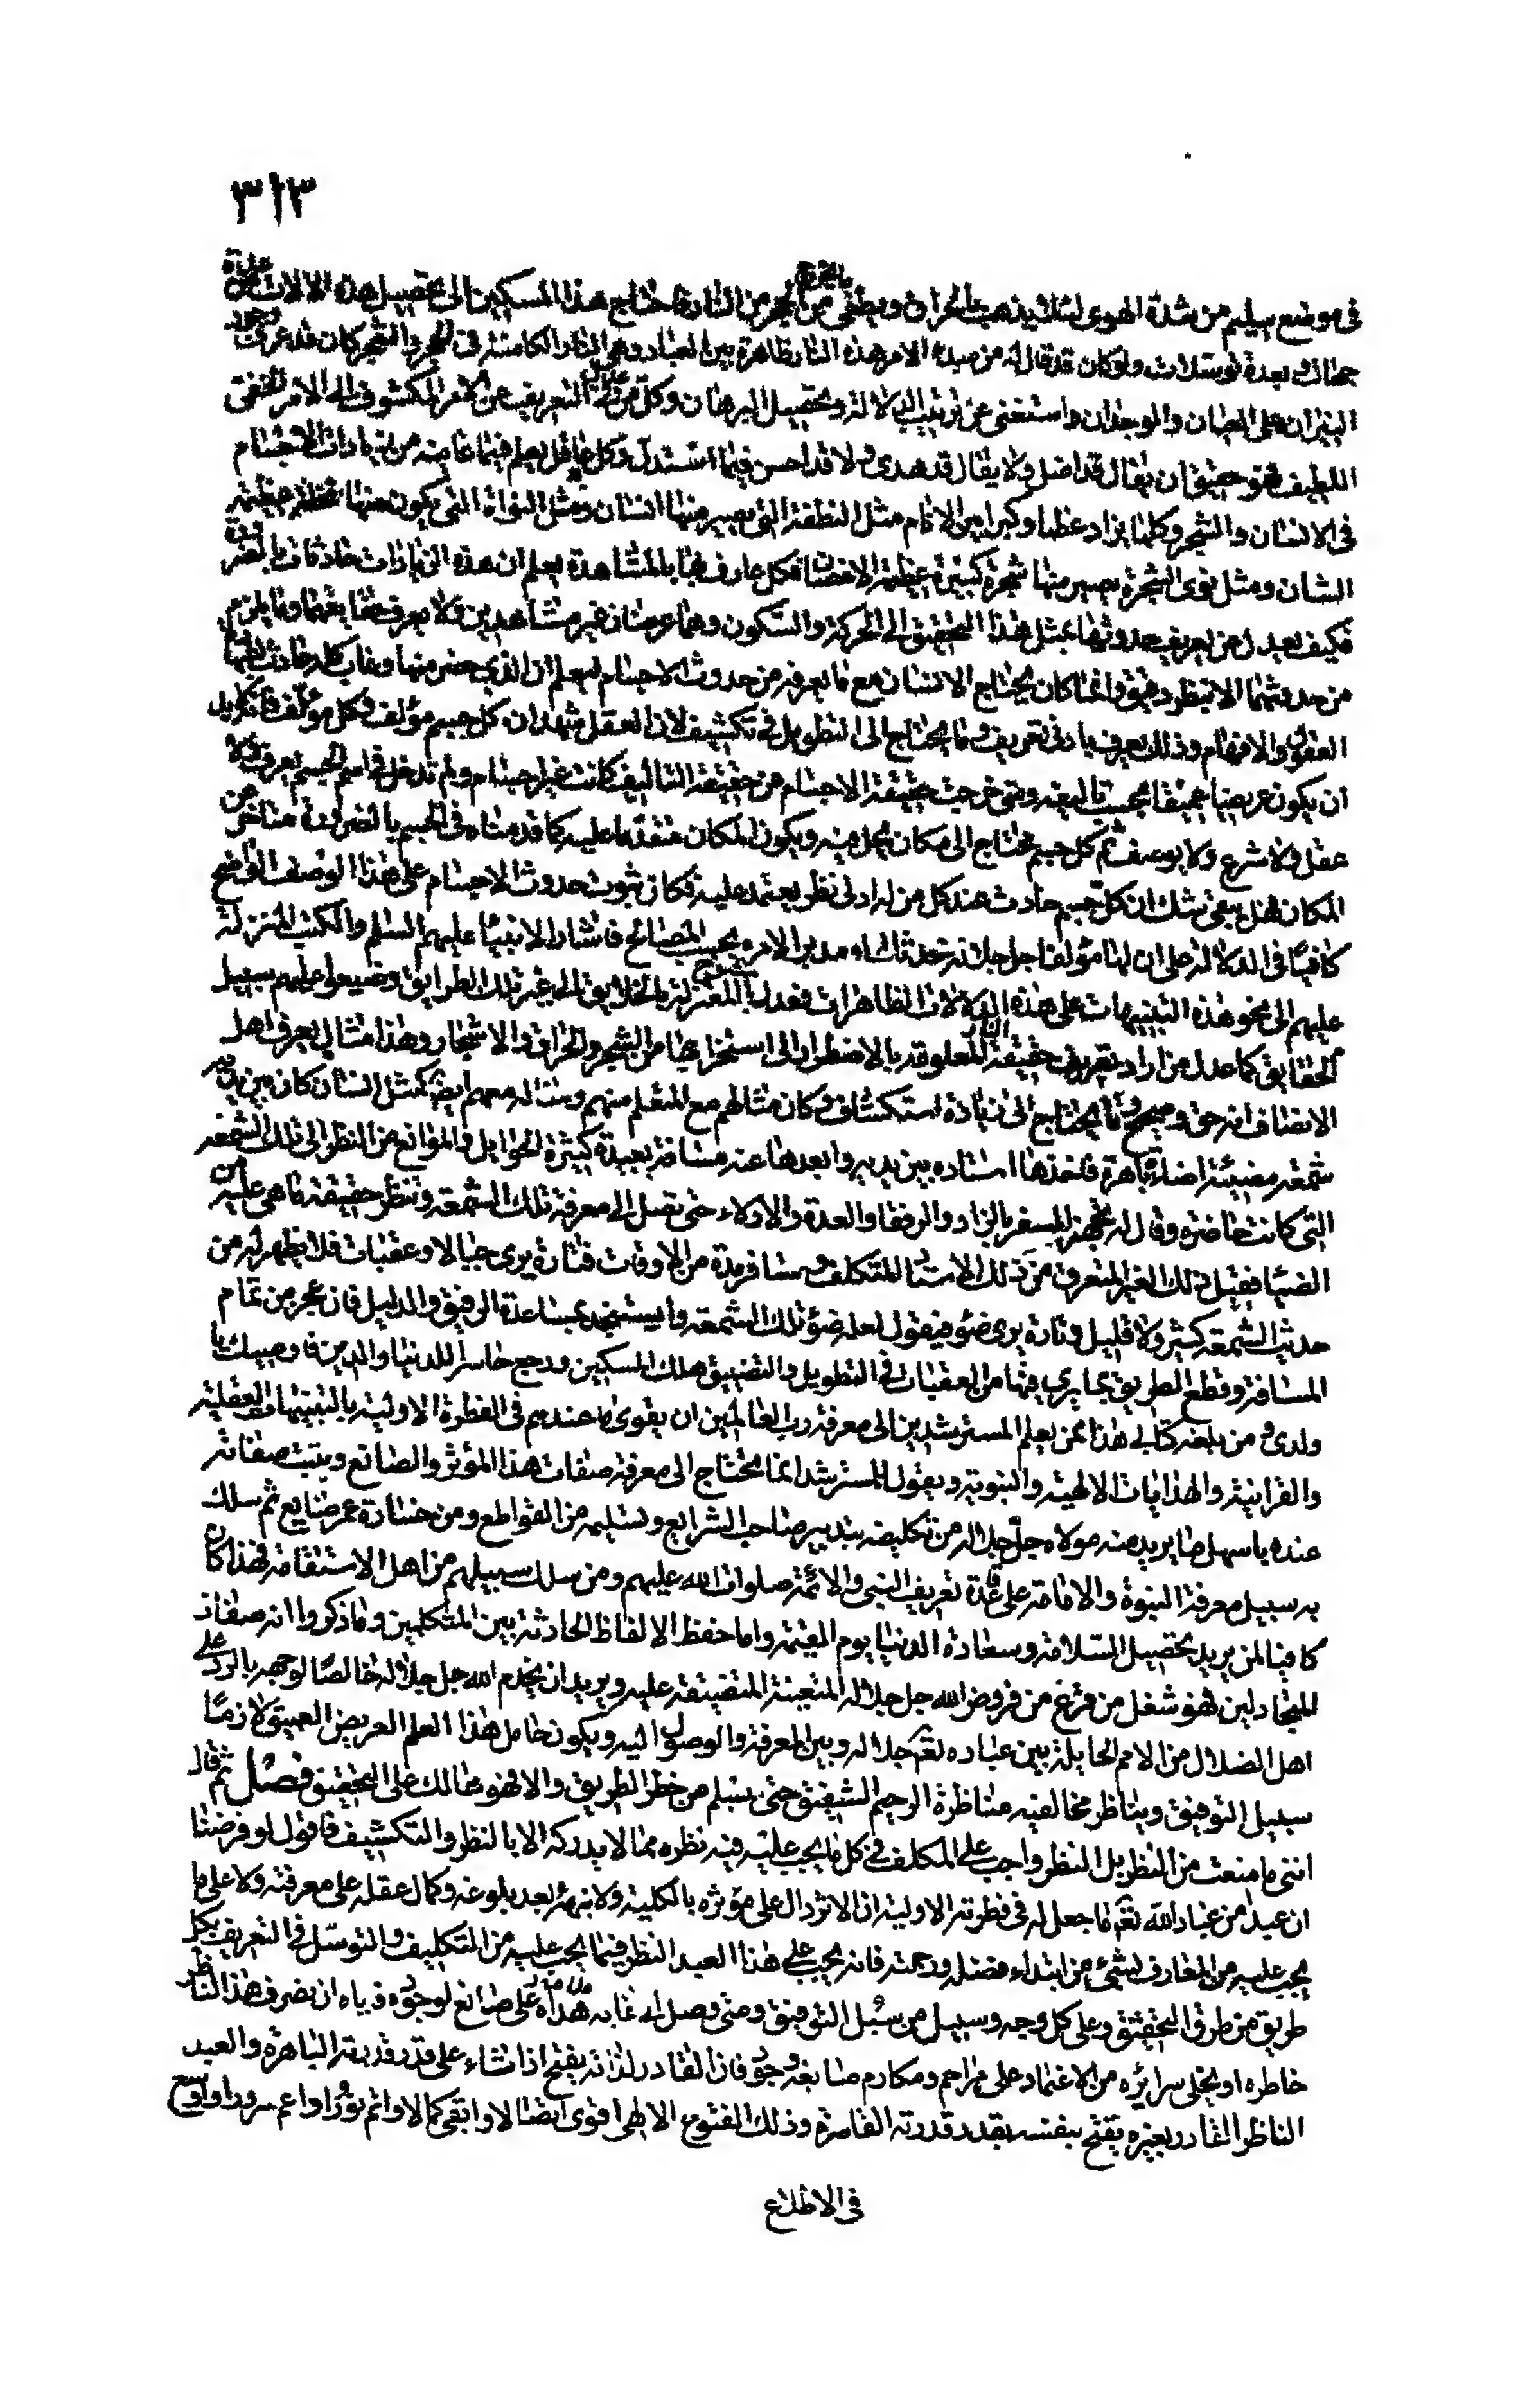 ٣١٣
في موضع سليم من شدة الهوى لئلا يذهب بالحراق ويطفى ما يخرج من الحجر من النار فاحتاج هذا المسكين الى تحصيل هذه الالات من عدة
جهات بعدة توسلات ولو كان قد قال له من مبدء الامر هذه النار ظاهرة بين العباد وهي النار الكامنة في الحجر والشجر كان قد عرف وجود
النيران على العيان والوجدان واستغنى عن ترتيب الدلالة وتحصيل البرهان وكل من عدل في التعريف عن الامر المكشوف الى الامر الخفى
اللطيف فهو حقيق ان يقال قد اضل ولا يقال قد هدى ولا قد احسن فيما استدل وكل عاقل يعلم فيما عاينه من زيادات الاجسام
في الانسان والشجر وكلما يزاد عظما وكبرا بين الانام مثل النطفة التي يصير منها انسان ومثل النواة التي يكون منها نخلة عظيمة
الشان ومثل نوى الشجرة يصير منها شجرة كبيرة عظيمة الاغصان فكل عارف بها بالمشاهدة يعلم ان هذه الزيادات حادثات بالضرورة
فكيف يعدل عن تعريف حدوثها بمثل هذا التحقيق الى الحركة والسكون وهما عرضان غير مشاهدين ولا يعرف حقايقهما وما يلزم
من حدوثهما الا بنظر دقيق وانما كان يحتاج الانسان مع ما يعرفه من حدوث الاجسام ليعلم ان الذي حضر منها وغاب كله حادث
العقول والافهام وذلك يعرف بادنى تعريف وما يحتاج الى التطويل في تكشيف لان العقل شهد ان كل جسم مؤلف وكل مؤلف
ان يكون عريضا عميقا بحسب تاليفه ومتى خرجت حقيقة الاجسام من حقيقة التاليف كانت غير اجسام ولم تدخل في اسم الجسم بعرف ولا
عقل ولا شرع ولا يوصف ثم كل جسم محتاج الى مكان يحل فيه ويكون المكان متقدما عليه كما قدمناه في الجسم بالضرورة متاخر عن
المكان فهل يبقى شك ان كل جسم حادث عند كل من له ادنى نظر يعتمد عليه فكان ثبوت حدوث الاجسام على هذا الوصف الواضح
كافيا في الدلالة على ان لها مؤلفا جل جلاله مدبر الامر بحسب المصالح فاشار الانبيا عليهم السلم والكتب المنزلة
عليهم الى نحو هذه التنبيهات على هذه الدلالات الظاهرات فعدل شيوخ المعتزلة بالخلايق الى غير تلك الطرايق وضيعوا عليهم سبيل
الحقايق كما عدل من اراد تعريف حقيقة النار المعلومة بالاضطرار الى استخراجها من الشجر والحراق والاحجار وهذا مثال يعرف اهل
الانصاف انه حق وصحيح وما يحتاج الى زيادة استكشاف وكان مثالهم مع المتعلم منهم ومثاله معهم ايضا كمثل انسان كان بين يديه
شمعة مضيئة اضاءة باهرة فاخذها استاده بين يديه وابعدها عنه مسافة بعيدة كثيرة الحوايل والموانع من النظر الى تلك الشمعة
التي كانت حاضرة وقال له تجهز للسفر بالزاد والرفقا والعدة والادلاء حتى تصل الى معرفة تلك الشمعة وتنظر حقيقة ما هي عليه من
الضيا فقبل ذلك الغير المتعرف من ذلك الاستاد المتكلف وسافر مدة من الاوقات فتارة يرى جبالا وعقبات فلا يظهر له من
حديث الشمعة كثير ولا قليل وتارة يرى ضوء فيقول لعله ضوء تلك الشمعة ويستنجد بمساعدة الرفيق والدليل فان عجز من تمام
المسافة وقطع الطريق بما يرى فيها من العقبات في التطويل والتضييق هلك المسكين ورجع خاسرا للدنيا والدين فاوصيك يا
ولدى ومن بلغه كتابي هذا ممن يعلم المسترشدين الى معرفة رب العالمين ان يقوى ما عندهم في الفطرة الاولية بالتنبيهات العقلية
والقرانية والهدايات الالهية والنبوية ويقول للمسترشد انما تحتاج الى معرفة صفات هذا المؤثر والصانع ويثبت صفاته
عنده باسهل ما يريد منه مولاه جل جلاله من تكليفه بتدبير صاحب الشرايع وتسليمه من القواطع ومن خسارة عمر ضايع ثم سلك
به سبيل معرفة النبوة والامامة على قاعدة تعريف النبي والائمة صلوات الله عليهم ومن سلك سبيلهم من اهل الاستقامة فهذا كان
كافيا لمن يريد تحصيل السلامة وسعادة الدنيا ويوم القيمة واما حفظ الالفاظ الحادثة بين المتكلمين وما ذكروا انه صفات
المتجادلين فهو شغل من فرغ من فروض الله جل جلاله المتعينة المتضيقة عليه ويريد ان يخدم الله جل جلاله خالصا لوجهه بالرد على
اهل الضلال من الامم الحايلة بين عباده جل جلاله وبين المعرفة والوصول اليه ويكون حامل هذا العلم العريض العميق لازما
سبيل التوفيق ويناظر مخالفيه مناظرة الرحيم الشفيق حتى يسلم من خطر الطريق والا فهو هالك على التحقيق فصل ثم قال
انني ما منعت من النظر بل النظر واجب على المكلف في كل ما يجب عليه فيه نظره مما لا يدركه الا بالنظر والتكشيف فاقول لو فرضنا
ان عبدا من عباد الله ما جعل له في فطرته الاولية ان الاثر دال على مؤثره بالكلية ولا نبهه بعد بلوغه وكمال عقله على معرفته ولا على ما
يجب عليه من المعارف لشيء من ابتداء فضله ورحمته فانه يجب على هذا العبد النظر فيما يجب عليه من التكليف والتوسل في التعريف بكل
طريق من طرق التحقيق وعلى كل وجه وسبيل من سبل التوفيق ومتى وصل الى غاية على صانع لوجوده فاياه ان يصرف هذا الناظر
خاطره او يخلى سرائره من الاعتماد على مراحم ومكارم صانعه وجوده فان القادر لذاته يفتح اذا شاء على قدر قدرته الباهرة والعبد
الناظر القادر بغيره يفتح بنفسه بقدر قدرته القاصرة وذلك الفتوح الالهي اقوى ايصالا وابقى كمالا واتم نورا واعم سرورا واوسع
في الاطلاع